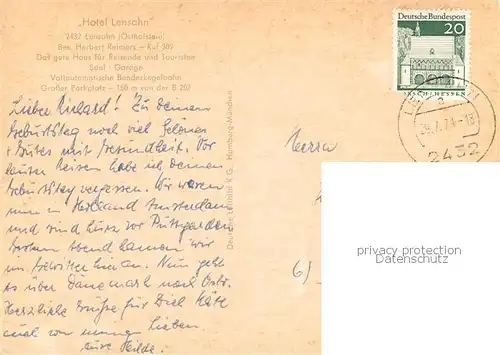 „Hotel Lensahn"
2432 Lensahn (Ostholstein)
Bes. Herbert Reimers - Ruf 309
Das gute Haus für Reisende und Touristen
Saal - Garage
Vollautomatische Bundeskegelbahn
Großer Parkplatz - 150 m von der B 207
Deutsche Bundespost
20
LORSCH/HESSEN
2432
Lieber Richard! Zu Deinem
Geburtstag noch viel Schönes
+ Gutes mit Gesundheit. Vor
lauter Reisen habe ich Deinen
Geburtstag vergessen. Wir waren
nun in Holland Amsterdam
und sind kurz vor Puttgarden
Gestern Abend kamen wir
im Gewitter hier an. Nun geht
es über Dänemark nach
Herzliche Grüße für Dich Käte
auch von meinen Lieben.
Eure Hilde.
Herrn
Hamburg-München
privacy protection
Datenschutz